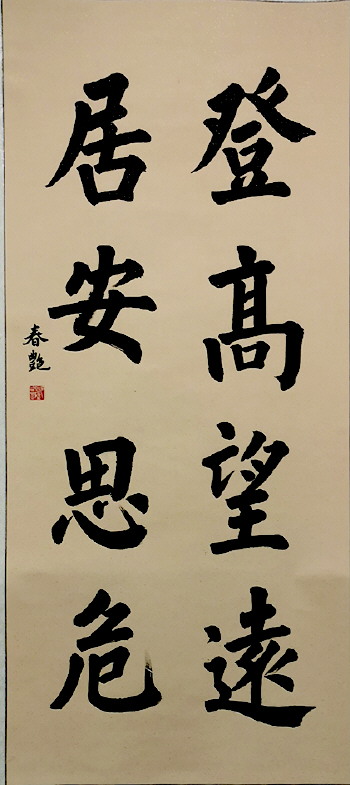 登髙望遠
居安思危
春艷